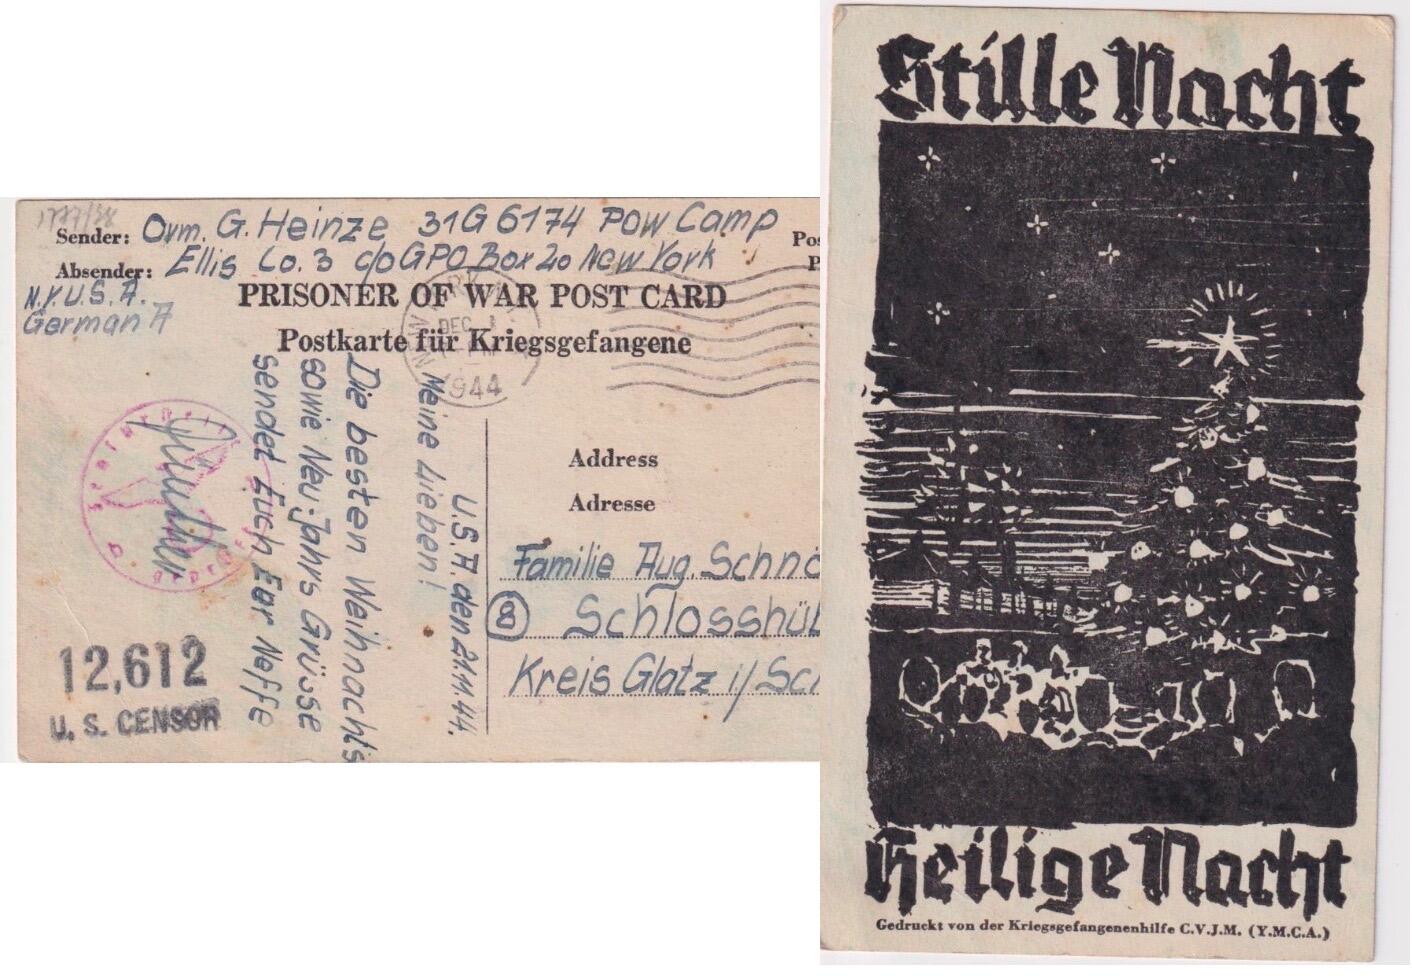 Sender: Ovm. G. Heinze 31G 6174 POW Camp
Absender: Ellis Co. 3 c/o GPO Box 20 New York
N.Y. U.S.A.
German A
PRISONER OF WAR POST CARD
Postkarte für Kriegsgefangene
DEC
1944
U.S.A. den 21.11.44.
Meine Lieben!
Die besten Weihnachts
sowie Neu-Jahrs Grüsse
sendet Euch Eur Neffe
12,612
U. S. CENSOR
Address
Adresse
Familie Aug. Schnö
8 Schlosshüb
Kreis Glatz i/ Sch
Stille Nacht
Heilige Nacht
Gedruckt von der Kriegsgefangenenhilfe C.V.J.M. (Y.M.C.A.)